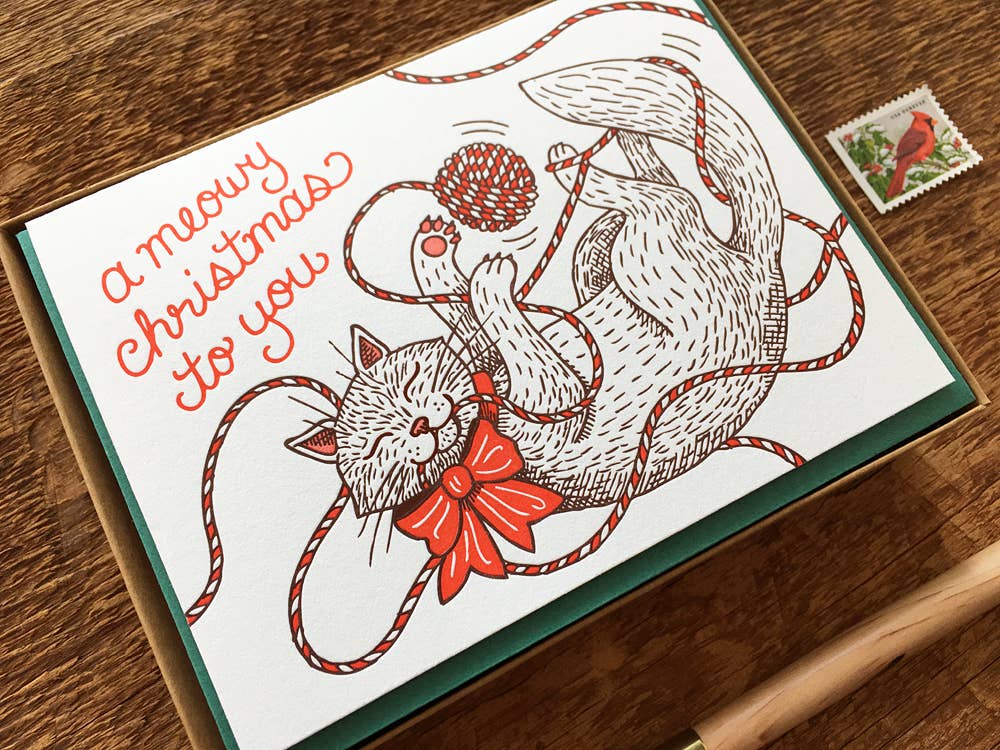 a meowy
christmas
to you
USA FOREVER